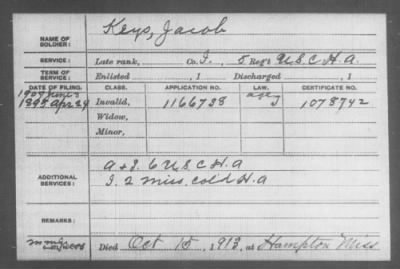 Keys, Jacob
NAME OF SOLDIER:
SERVICE: Late rank, Co. I, 5 Reg't U.S.C.H.A.
TERM OF SERVICE: Enlisted , 1 Discharged , 1
DATE OF FILING. CLASS. APPLICATION NO. LAW. CERTIFICATE NO.
1895 Apr 29 Invalid, 1166738 1078742
Widow,
Minor,
ADDITIONAL SERVICES: A + I. 6 U.S.C.H.A
I. 2 Miss. Cold H.A
REMARKS:
Died Oct 15, 1913, at Hampton Miss